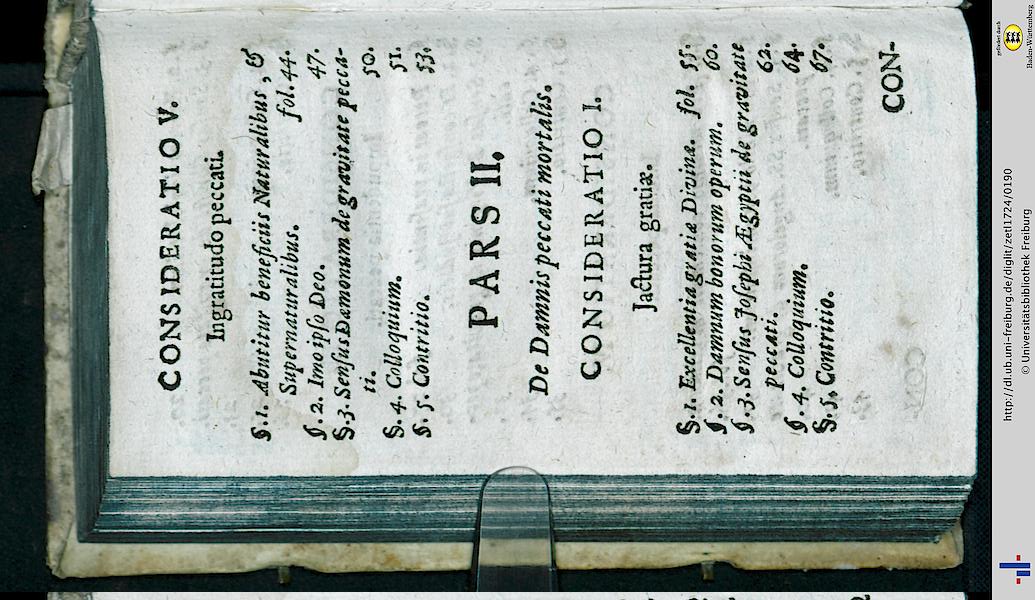 CONSIDERATIO V.
Ingratitudo peccati.
§. 1. Abutitur beneficiis Naturalibus, &
Supernaturalibus. fol. 44.
§. 2. Imo ipso Deo. 47.
§. 3. Sensus Dæmonum de gravitate pecca-
ti. 50.
§. 4. Colloquium. 51.
§. 5. Contritio. 53.
PARS II.
De Damnis peccati mortalis.
CONSIDERATIO I.
Jactura gratiæ.
§. 1. Excellentia gratiæ Divinæ. fol. 55.
§. 2. Damnum bonorum operum. 60.
§. 3. Sensus Josephi Ægyptii de gravitate
peccati. 62.
§. 4. Colloquium. 64.
§. 5. Contritio. 67.
CON-
http://dl.ub.uni-freiburg.de/diglit/zetl1724/0190
© Universitätsbibliothek Freiburg
gefördert durch
Baden-Württemberg